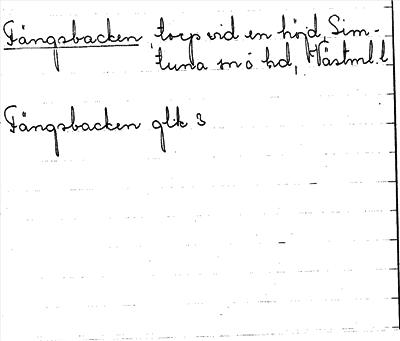 Fängsbacken, torp vid en höjd, Sim-
tuna sn o hd, Västml. l
Fängsbacken glk 3